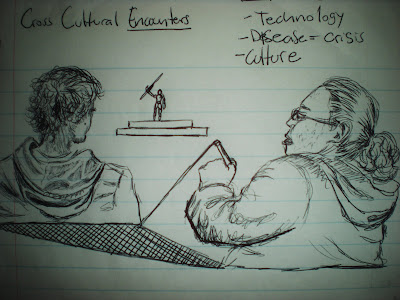 Cross Cultural Encounters
- Technology
- Disease = crisis
- Culture